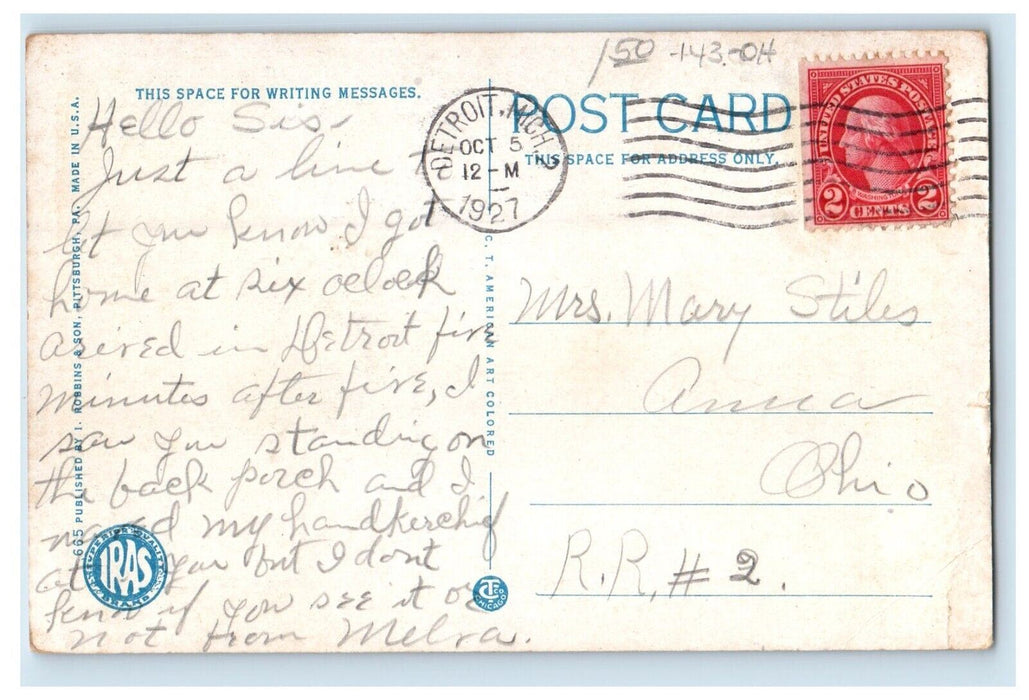 150 -143-OH
THIS SPACE FOR WRITING MESSAGES.
POST CARD
THIS SPACE FOR ADDRESS ONLY.
DETROIT, MICH.
OCT 5
12-M
1927
UNITED STATES POSTAGE
WASHINGTON
2 CENTS 2
Hello Sis-
Just a line to
let you know I got
home at six oclock
arived in Detroit five
minutes after five, I
saw you standing on
the back porch and I
waved my handkerchief
at you but I dont
know if you see it or
not from Melva.
Mrs. Mary Stiles
Anna
Ohio
R.R. # 2.
665 PUBLISHED BY I. ROBBINS & SON, PITTSBURGH, PA. MADE IN U.S.A.
C. T. AMERICAN ART COLORED
SUPERIOR QUALITY
IRAS
BRAND
CT CO
CHICAGO